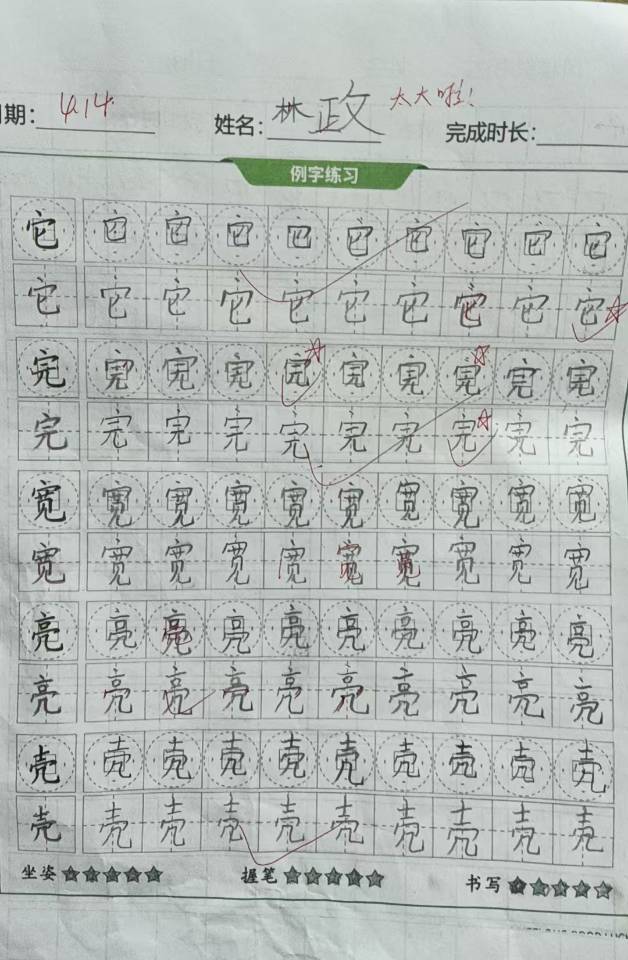 期： 4.14. 姓名：林政 太大啦！ 完成时长：
例字练习
它 它 它 它 它 它 它 它 它 它
它 它 它 它 它 它 它 它 它 它
完 完 完 完 完 完 完 完 完 完
完 完 完 完 完 完 完 完 完 完
宽 宽 宽 宽 宽 宽 宽 宽 宽 宽
宽 宽 宽 宽 宽 宽 宽 宽 宽 宽
亮 亮 亮 亮 亮 亮 亮 亮 亮 亮
亮 亮 亮 亮 亮 亮 亮 亮 亮 亮
壳 壳 壳 壳 壳 壳 壳 壳 壳 壳
壳 壳 壳 壳 壳 壳 壳 壳 壳 壳
坐姿 握笔 书写